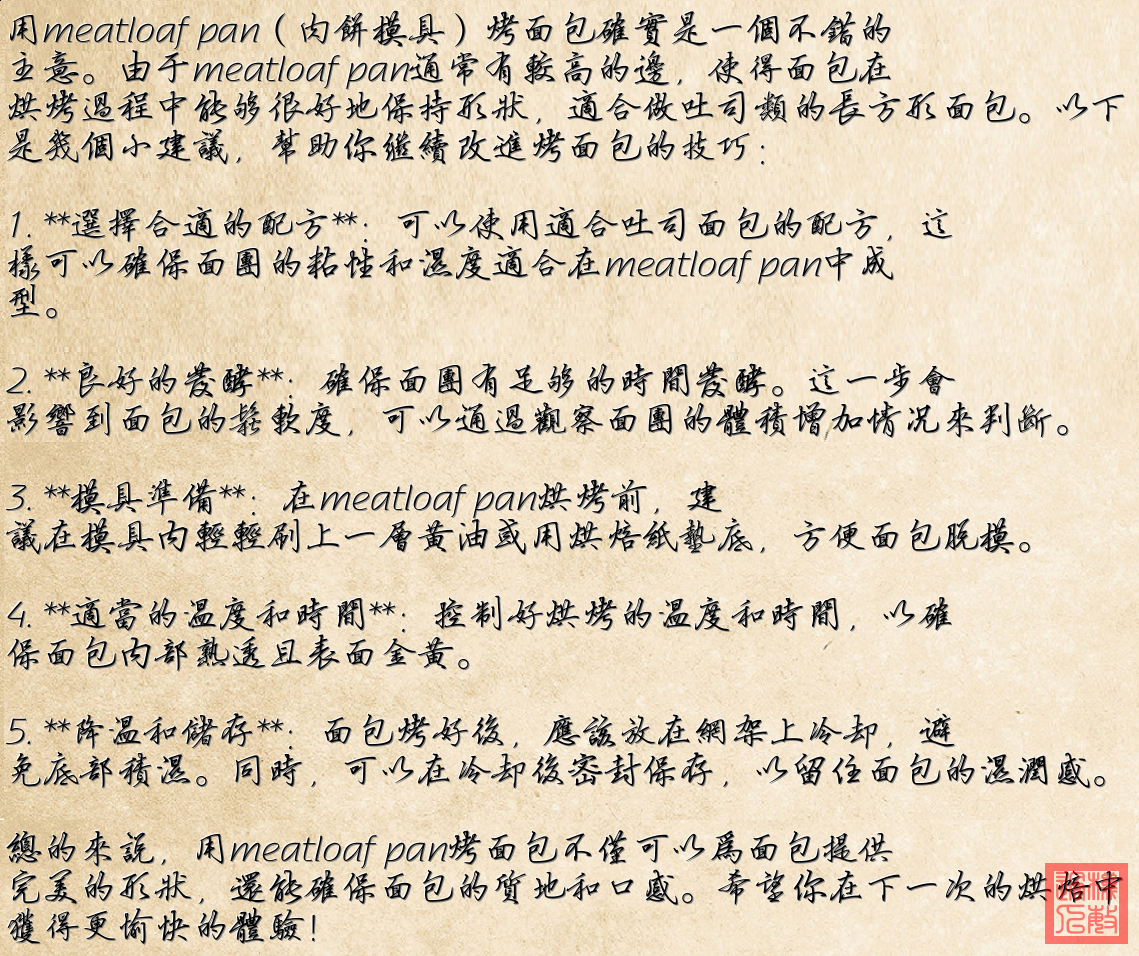 用meatloaf pan（肉餅模具）烤面包確實是一個不錯的
主意。由于meatloaf pan通常有較高的邊，使得面包在
烘烤過程中能够很好地保持形狀，適合做吐司類的長方形面包。以下
是幾個小建議，幫助你繼續改進烤面包的技巧：
1. **選擇合適的配方**：可以使用適合吐司面包的配方，這
樣可以確保面團的粘性和濕度適合在meatloaf pan中成
型。
2. **良好的發酵**：確保面團有足够的時間發酵。這一步會
影響到面包的鬆軟度，可以通過觀察面團的體積增加情况來判斷。
3. **模具準備**：在meatloaf pan烘烤前，建
議在模具内輕輕刷上一層黄油或用烘焙紙墊底，方便面包脱模。
4. **適當的温度和時間**：控制好烘烤的温度和時間，以確
保面包内部熟透且表面金黄。
5. **降温和儲存**：面包烤好後，應該放在網架上冷却，避
免底部積濕。同時，可以在冷却後密封保存，以留住面包的濕潤感。
總的來説，用meatloaf pan烤面包不僅可以爲面包提供
完美的形狀，還能確保面包的質地和口感。希望你在下一次的烘焙中
獲得更愉快的體驗！